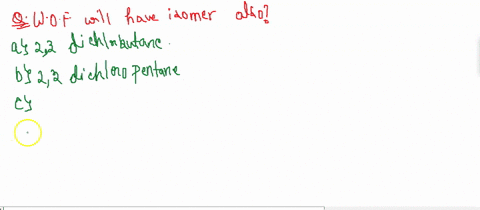 Q: W.O.F will have isomer also?
a} 2,3 dichlobutane.
b} 2,3 dichloro pentane
c}